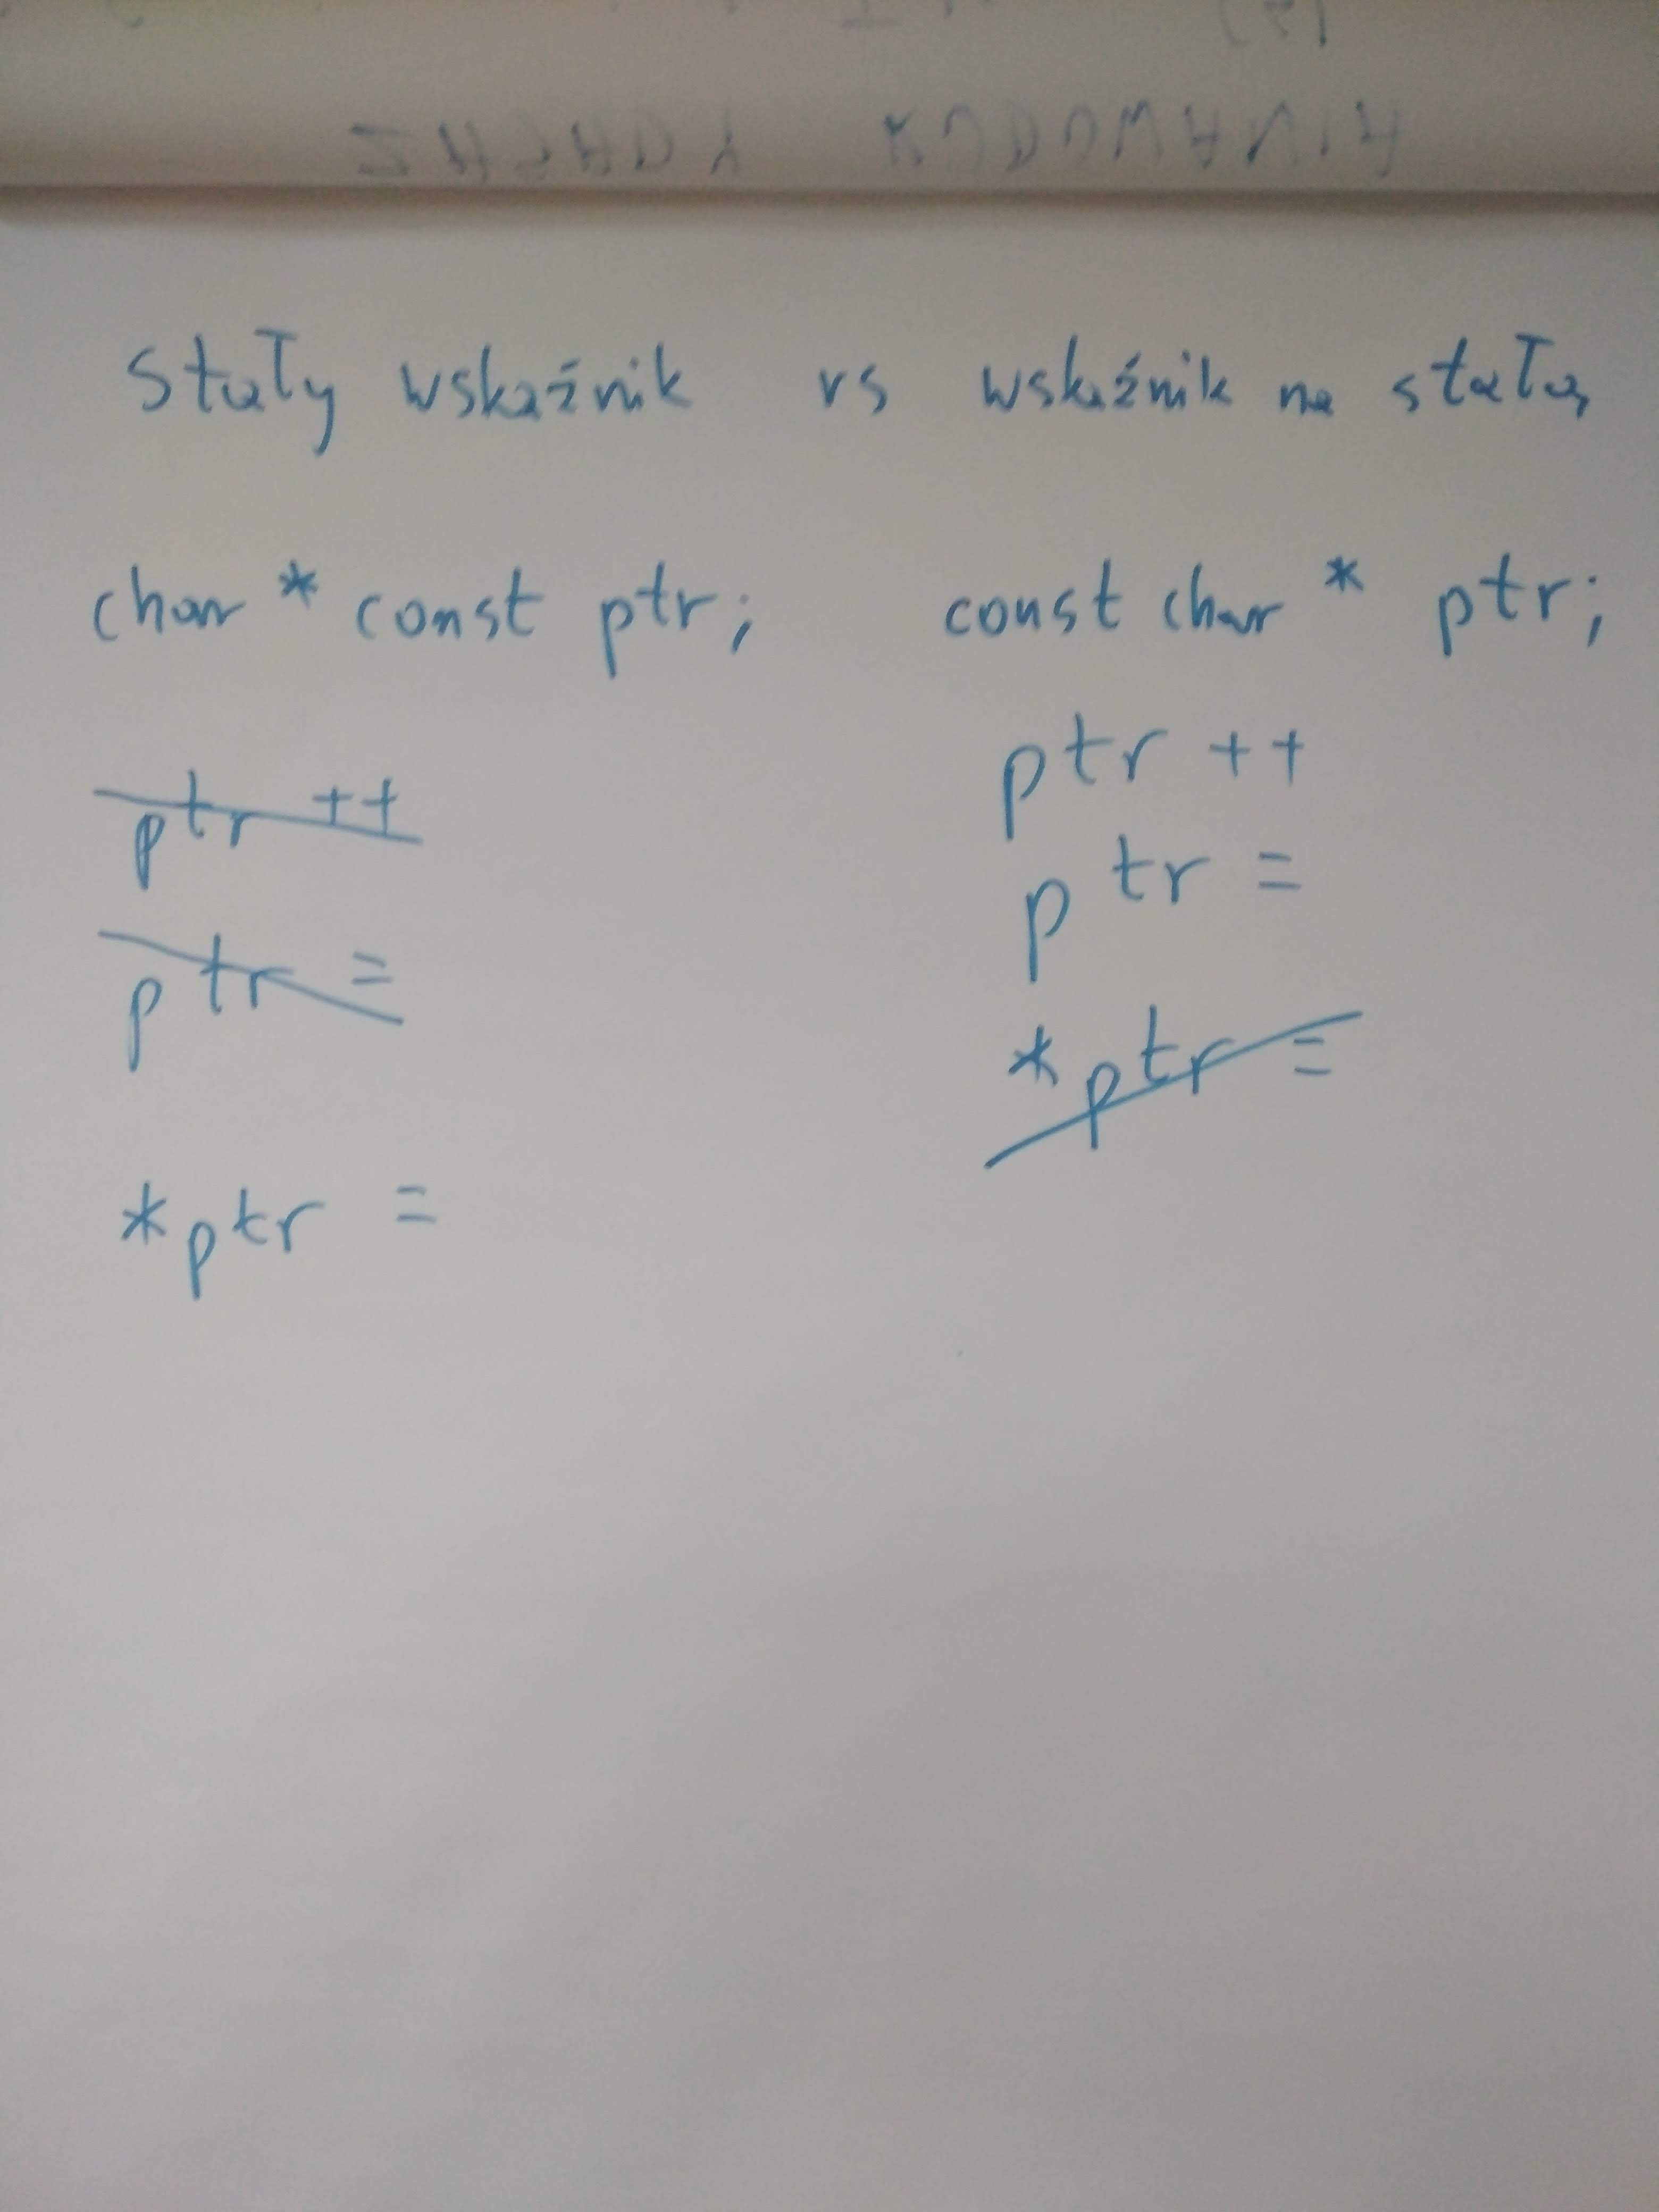 stały wskaźnik vs wskaźnik na stałą
char * const ptr; const char * ptr;
ptr ++
ptr =
*ptr =
ptr ++
ptr =
*ptr =